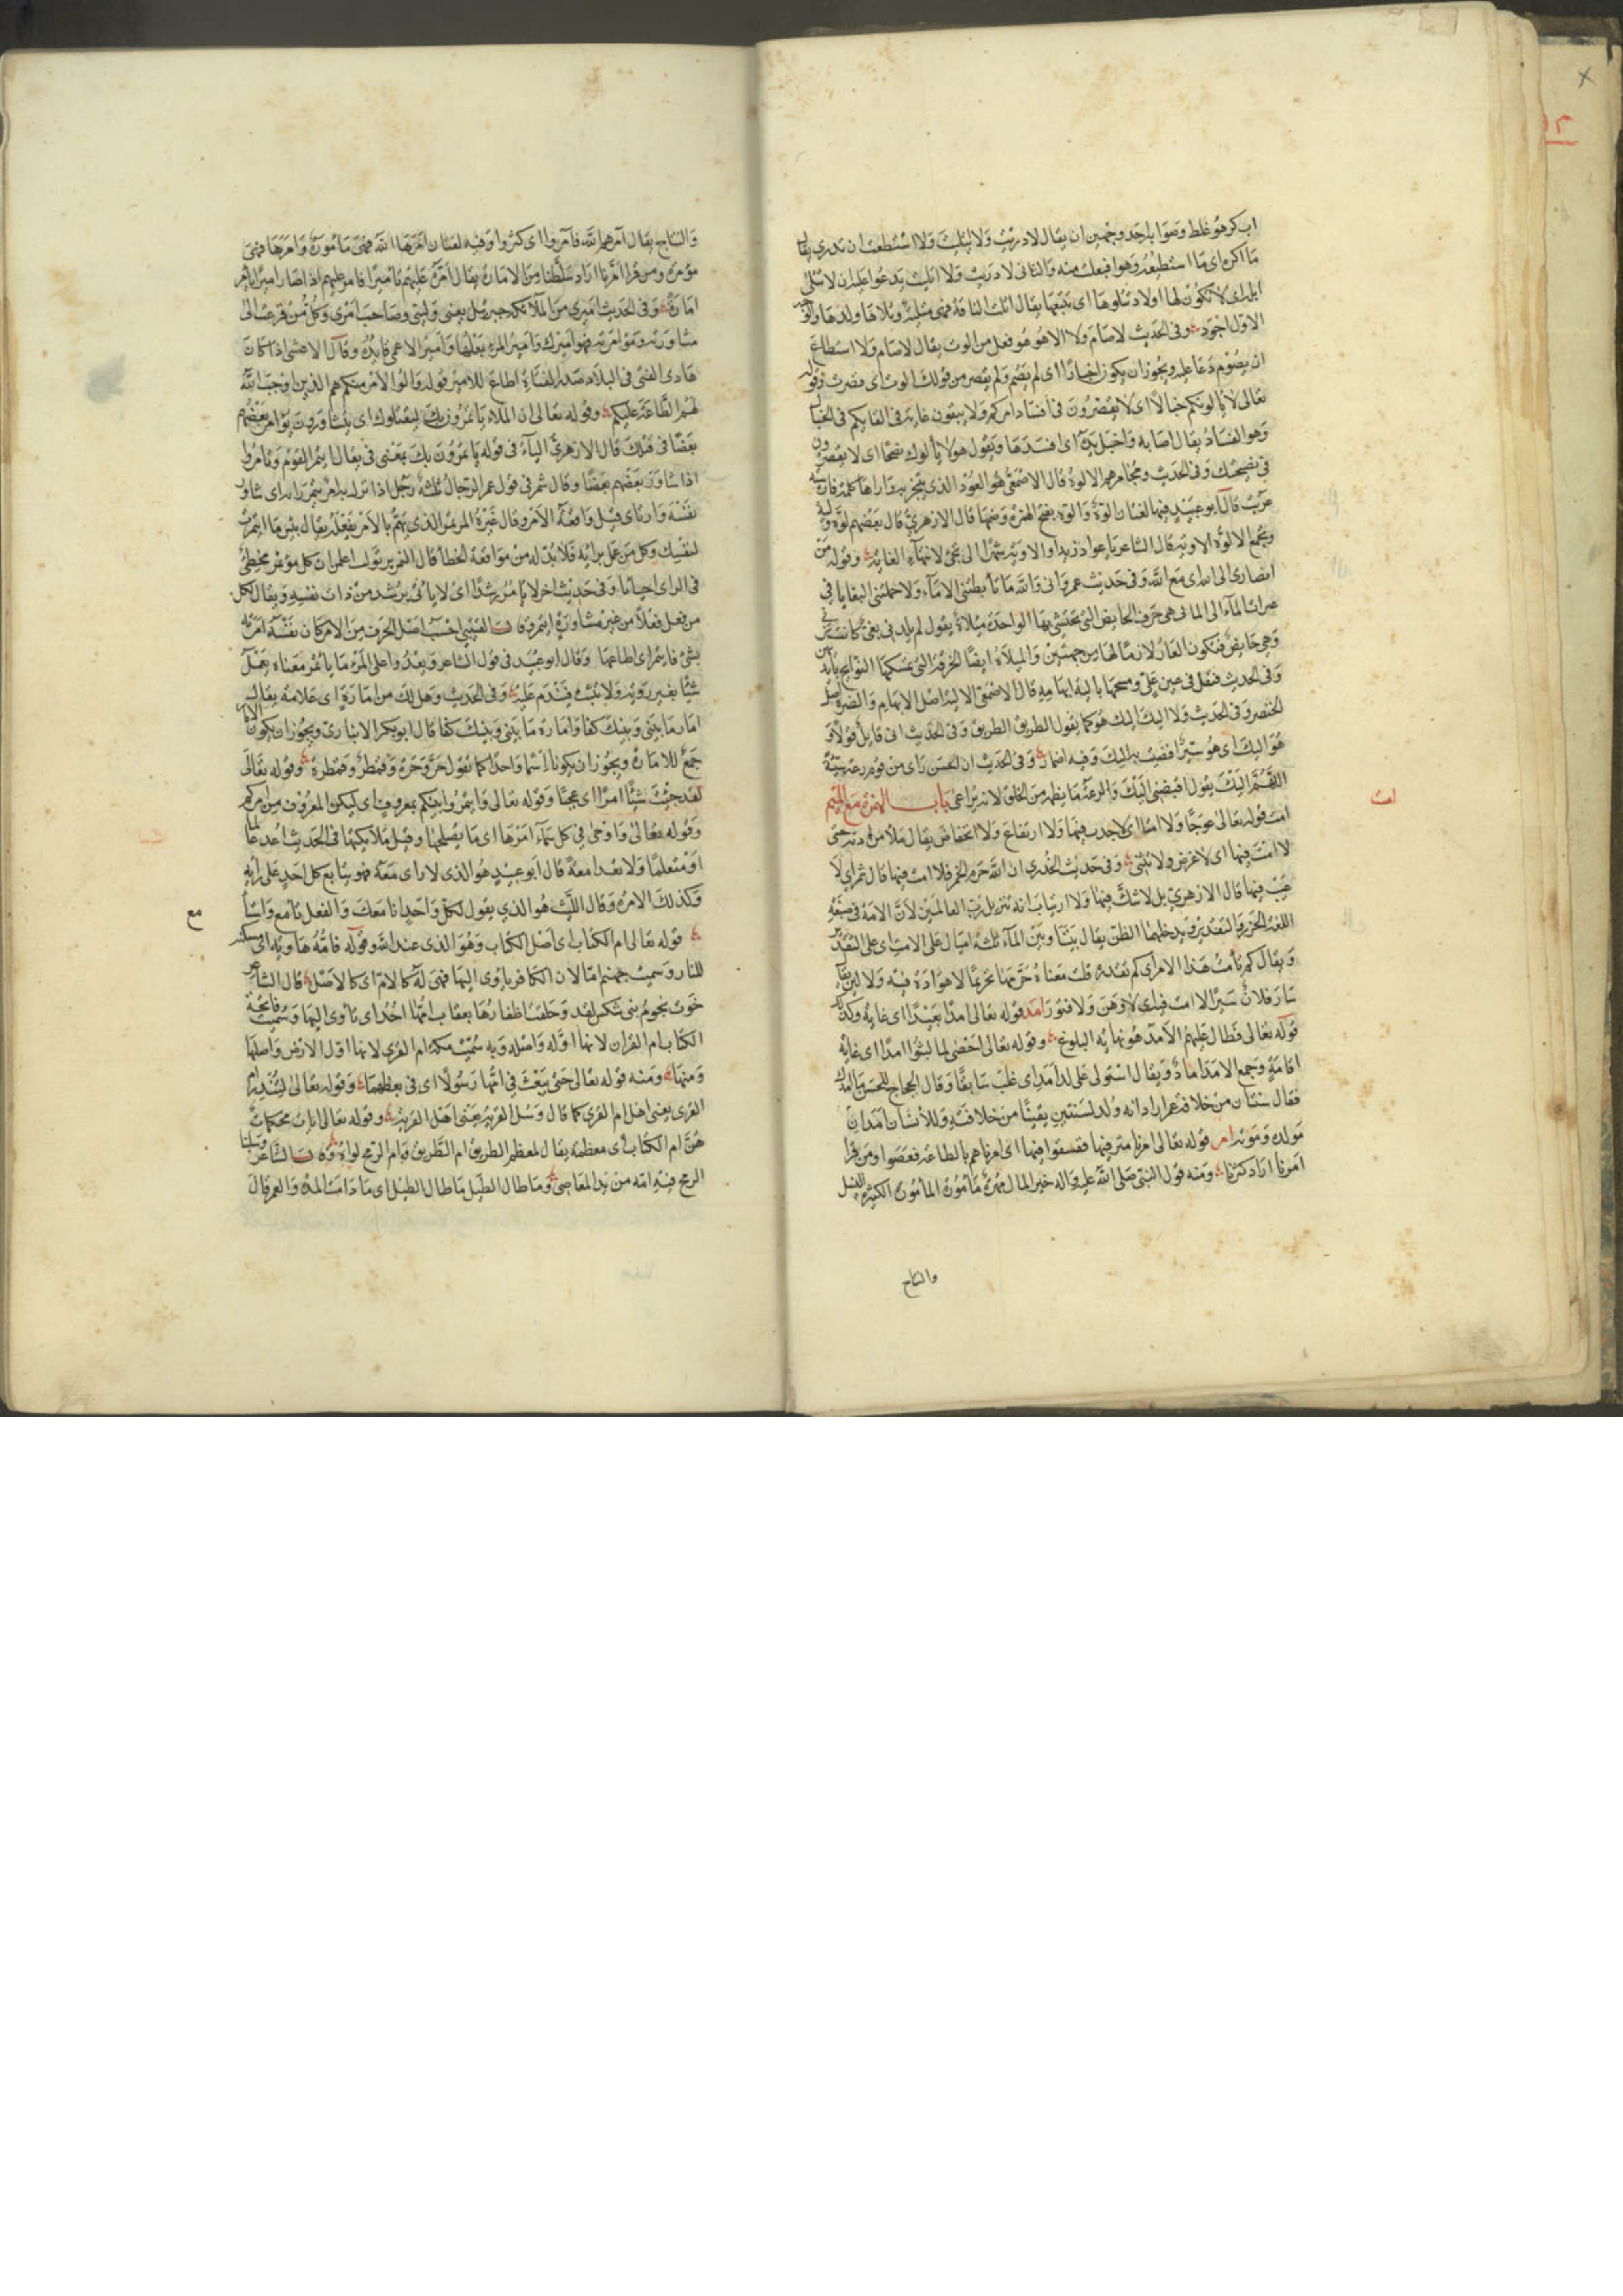 ابى كرهو غلط وصوابه احد وجهين ان يقال لا دريت ولا ائتليت ولا استطعت ان تدرى يقال
ما آلوه اى ما استطيعه وهو افتعلت منه والثانى لا دريت ولا اتليت يدعوا عليه ان لا تتلى
ابله اى لا تكون لها اولاد تتلوها اى تتبعها يقال اتلت الناقة فهى متلية وتلاها ولدها والوجه
الاول اجود وفى الحديث لا صام ولا الا هو فعل من الوت يقال لا صام ولا استطاع
ان يصوم دعا عليه ويجوز ان يكون اخبارا اى لم يصم ولم يقصر من قولك الوت اى قصرت وقوله
تعالى لا يالونكم خبالا اى لا يقصرون فى افساد امركم ولا يبقون غاية فى القايكم فى الخبال
وهو الفساد يقال اصابه واختبل يده اى افسدها ويقول هولا يالوك نصحا اى لا يقصرون
فى نصيحتك وفى الحديث ومجامرهم الالوة قال الاصمعى هو العود الذى يتبخر به واراها كلمة فارسية
عربت قال ابو عبيد فيها لغتان الوة والوة بفتح الهمزة وضمها قال الازهرى قال بعضهم لوة ولية
وتجمع الالوة الاوية قال الشاعر باعواد زند او الاوية شقرا الى تجئ لانتهاء الغاية وقوله من
انصارى الى الله اى مع الله وفى حديث عمرو انى والله ما تأبطتنى الاماء ولا حملتنى البغايا فى
غبرات المآلى المآلى هى خرق الحايض التى تحتشى بها الواحدة مئلاة يقول لم يلدنى بغى كانت تزنى
وهى حايض فتكون العار لازما لها من جهتين والميلاه ايضا الخرقة التى تمسكها النوايح بايديهن
وفى الحديث فتفل فى عين على ومسحها بالية ابهامه قال الاصمعى الالية اصل الابهام والضرة اصل
الخنصر وفى الحديث ولا اليك اليك هو كما يقول الطريق الطريق وفى الحديث انى قايل قولا و
هو اليك اى هو سر افضيت به اليك وفيه اضمار وفى الحديث ان الحسن راى من قوم رعة سيئة
اللهم اليك يقول اقبضنى اليك والرعة ما يظهر من الخلق لانه يراعى باب الهمزة مع الميم
امت قوله تعالى عوجا ولا امتا اى لا حدب فيها ولا ارتفاع ولا انخفاض يقال ملأ مزادته حتى
لا امت فيها اى لا غرض ولا تثنى وفى حديث الخدرى ان الله حرم الخمر فلا امت فيها قال شمر اى لا
عيب فيها قال الازهرى بل لا شك فيها ولا ارتياب انه تنزيل رب العالمين لان الامت فى صيغة
اللغة الحزر والتقدير ويدخلهما الظن يقال بيننا وبين الماء ثلثة اميال على الامت اى على التقدير
ويقال كم تأمت هذا الامر اى كم تقدره قلت معناه حرمها تحريما لا هوادة فيه ولا لين يقال
سار فلان سيرا لا امت فيه اى لا وهن ولا فتور امد قوله تعالى امدا بعيدا اى غاية وكذلك
قوله تعالى فطال عليهم الامد هو نهاية البلوغ وقوله تعالى احصى لما لبثوا امدا اى غاية
اقامة وجمع الامد آماد ويقال استولى على الامد اى غلب سابقا وقال الحجاج للحسن ما امدك
فقال سنتان من خلافة عمر اراد انه ولد لسنتين بقيتا من خلافته وللانسان امدان
مولده وموته امر قوله تعالى امرنا مترفيها ففسقوا فيها اى امرناهم بالطاعة فعصوا ومن قرأ
آمرنا اراد كثرنا ومنه قول النبى صلى الله عليه واله خير المال مهرة مأمورة المأمورة الكثيرة النسل
والنتاج
امت
والنتاج يقال آمرهم الله فآمروا اى كثروا وفيه لغتان امرها الله فهى مأمورة وآمرها فهى
مؤمرة ومن قرا امرنا اراد سلطنا من الامارة يقال امرت عليهم تأميرا فامر عليهم اذا صار اميرا يأمر
امارة وفى الحديث اميرى من الملائكة جبرئيل يعنى وليى وصاحب امرى وكل من فزعت الى
مشاورته ومؤامرته فهو اميرك وامير المراة بعلها وامير الاعمى قايده وقال الاعشى اذا كان
هادى الفتى فى البلاد صدر القناة اطاع للامير قوله واولوا الامر منكم هم الذين اوجب الله
لهم الطاعة عليكم وقوله تعالى ان الملاء يأتمرون بك ليقتلوك اى يتشاورون يؤامر بعضهم
بعضا فى قتلك قال الازهرى الباء فى قوله يأتمرون بك بمعنى فى يقال ايتمر القوم وتآمروا
اذا شاور بعضهم بعضا وقال شمر فى قول عمر الرجال ثلثة رجل اذا نزل به امر ايتمر رايه اى شاور
نفسه وارتاى قبل واقعة الامر وقال غيره المؤتمر الذى يهم بالامر يفعله يقال بئس ما ايتمرت
لنفسك وكل من عمل برايه فلا بد له من مواقعة الخطأ قال النمر بن تولب اعلمن ان كل مؤتمر مخطئ
فى الراى احيانا وفى حديث اخر لا يأتمر رشدا اى لا ياتى برشد من ذات نفسه ويقال لكل
من فعل فعلا من غير مشاورة ايتمر قال القتيبى احسب اصل الحرف من الامر كان نفسه امرته
بشئ فايتمر اى اطاعها وقال ابو عبيد فى قول الشاعر ويعدو على المرء ما يأتمر معناه يعمل
شيئا بغير روية ولا تثبت فيندم عليه وفى الحديث وهل لك من امارة اى علامة يقال
امار ما بينى وبينك كذا وامارة ما بينى وبينك كذا قال ابو بكر الانبارى ويجوز ان يكون الامار
جمع للامارة ويجوز ان يكونا اسما واحدا كما تقول حر وحرة وقمطر وقمطرة وقوله تعالى
لقد جئت شيئا امرا اى عجبا وقوله تعالى وايتمروا بينكم بمعروف اى ليكن المعروف من امركم
وقوله تعالى واوحى فى كل سماء امرها اى ما يصلحها وقيل ملائكتها فى الحديث اغد عالما
او متعلما ولا تغد امعة قال ابو عبيد هو الذى لا راى معه فهو يتابع كل احد على رأيه
وكذلك الامرة وقال الليث هو الذى يقول لكل واحد انا معك والفعل تأمع واستأمع
قوله تعالى ام الكتاب اى اصل الكتاب وهو الذى عند الله وقوله فامه هاوية اى مسكنه
للنار وسميت جهنم اما لان الكافر ياوى اليها فهى له كالام اى كالاصل قال الشاعر
خوت نجوم بنى شكس لقد وحلقت اظفارها بعقاب امها احد اى تأوى اليها وسميت فاتحة
الكتاب ام القران لانها اوله واصله وبه سميت مكة ام القرى لانها اول الارض واصلها
ومنها ومنه قوله تعالى حتى يبعث فى امها رسولا اى فى معظمها وقوله تعالى لتنذر ام
القرى يعنى اهل ام القرى كما قال وسل القرية يعنى اهل القرية وقوله تعالى ايات محكمات
هن ام الكتاب اى معظمه يقال لمعظم الطريق ام الطريق وام الرمح لواؤه قال الشاعر وسلبنا
الرمح فيه امه من يد العاصى وما طال الطيل ما طال الطيل اى ما دامت المدة والعمر قال
مع